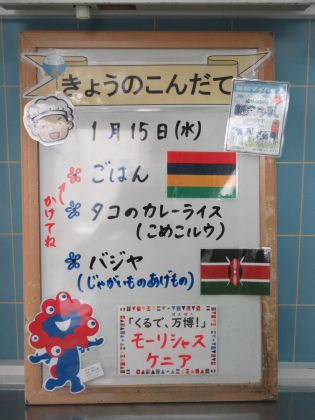 きょうのこんだて
1月15日(水)
ごはん
かけてね
タコのカレーライス
(こめこルウ)
バジャ
(じゃがいものあげもの)
「くるで、万博!」
モーリシャス
ケニア